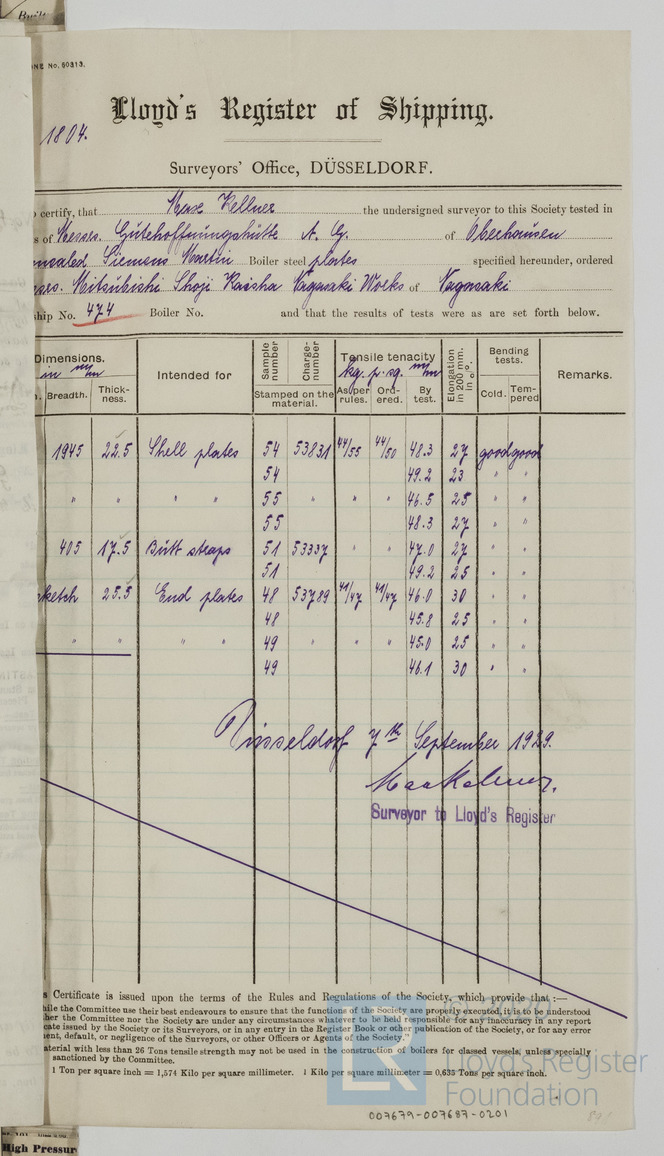 Built
No. 60313.
Lloyd's Register of Shipping.
1804.
Surveyors' Office, DÜSSELDORF.
certify, that Max Kellner the undersigned surveyor to this Society tested in
s of Messrs. Gutehoffnungshütte A. G. of Oberhausen
Siemens Martin Boiler steel plates specified hereunder, ordered
Mitsubishi Shoji Kaisha Nagasaki Works of Nagasaki
ship No. 474 Boiler No. and that the results of tests were as are set forth below.
Dimensions. Intended for Sample number Charge-number Tensile tenacity Elongation in 200 mm. in %. Bending tests. Remarks.
in m/m kg. p. sq. m/m
Breadth. Thick-ness. Stamped on the material. As per rules. Ord-ered. By test. Cold. Tem-pered
1945 22.5 Shell plates 54 53831 44/55 44/50 48.3 27 good good
54 49.2 23 " "
" " " " 55 " " " 46.5 25 " "
55 48.3 27 " "
405 17.5 Butt straps 51 53337 " " 47.0 27 " "
51 49.2 25 " "
sketch 25.5 End plates 48 53789 41/47 41/47 46.0 30 " "
48 45.8 25 " "
" " " " 49 " " " 45.0 25 " "
49 46.1 30 " "
Düsseldorf 7th September 1929.
Max Kellner.
Surveyor to Lloyd's Register
s Certificate is issued upon the terms of the Rules and Regulations of the Society, which provide that :—
hile the Committee use their best endeavours to ensure that the functions of the Society are properly executed, it is to be understood
her the Committee nor the Society are under any circumstances whatever to be held responsible for any inaccuracy in any report
cate issued by the Society or its Surveyors, or in any entry in the Register Book or other publication of the Society, or for any error
ent, default, or negligence of the Surveyors, or other Officers or Agents of the Society.
aterial with less than 26 Tons tensile strength may not be used in the construction of boilers for classed vessels, unless specially
sanctioned by the Committee.
1 Ton per square inch = 1,574 Kilo per square millimeter. 1 Kilo per square millimeter = 0,635 Tons per square inch.
© 2020
LR Lloyd's Register
Foundation
007679-007687-0201
High Pressur